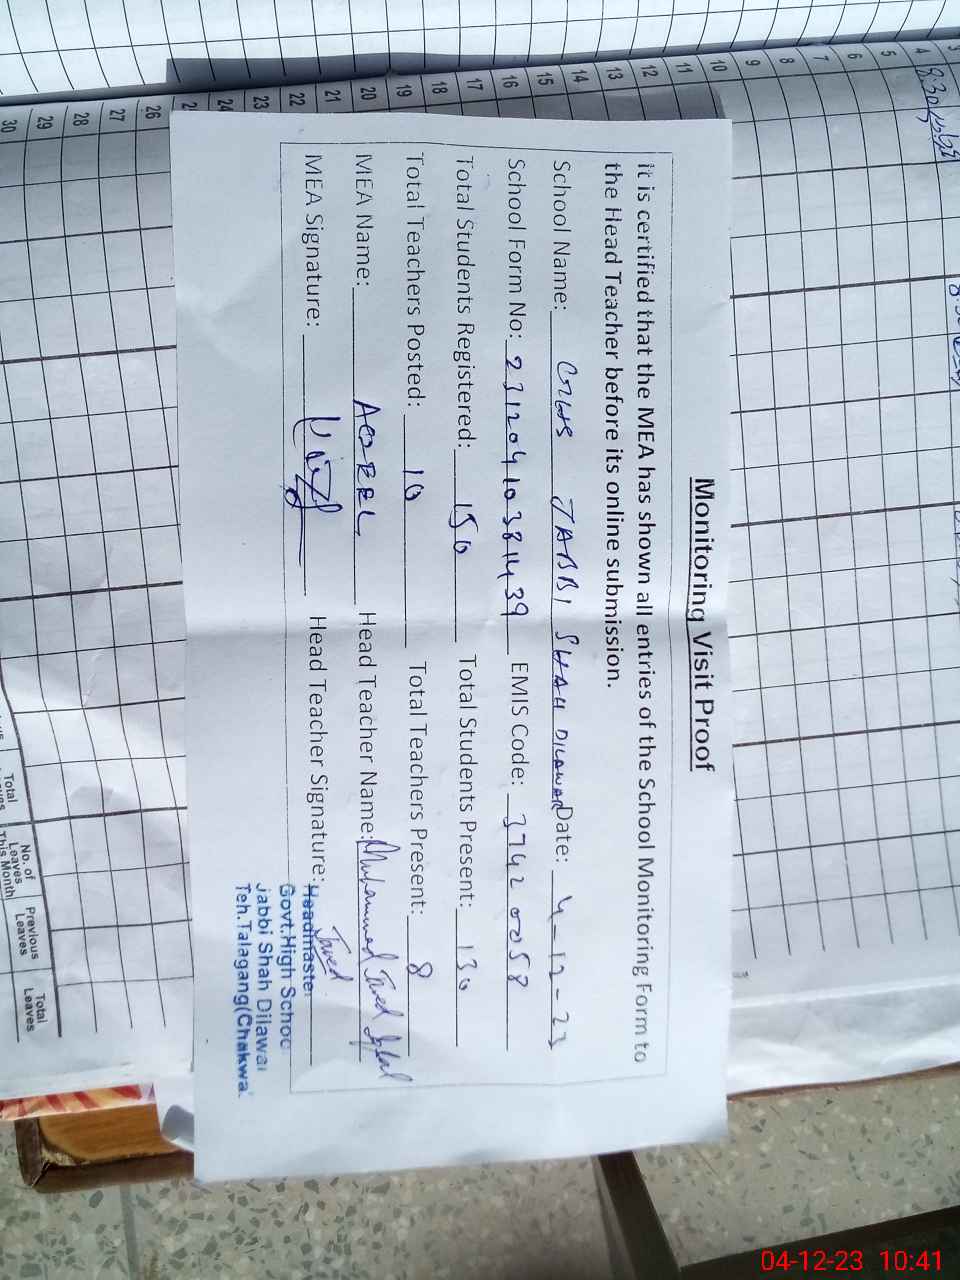 Monitoring Visit Proof
It is certified that the MEA has shown all entries of the School Monitoring Form to
the Head Teacher before its online submission.
School Name: GHS JABBI SHAH DILAWAR Date: 4-12-23
School Form No: EMIS Code: 37420058
Total Students Registered: 150 Total Students Present: 130
Total Teachers Posted: 10 Total Teachers Present: 8
MEA Name: Head Teacher Name: Muhammad Javed Iqbal
MEA Signature: Head Teacher Signature: Javed
Headmaster
Govt.High Schoo
Jabbi Shah Dilawar
Teh.Talagang(Chakwa
3
4
5
6
7
8
9
10
11
12
13
14
15
16
17
18
19
20
21
22
23
24
2
26
27
28
29
30
8:30
Total
No. of
Leaves
This Month
Previous
Leaves
Total
Leaves
04-12-23 10:41